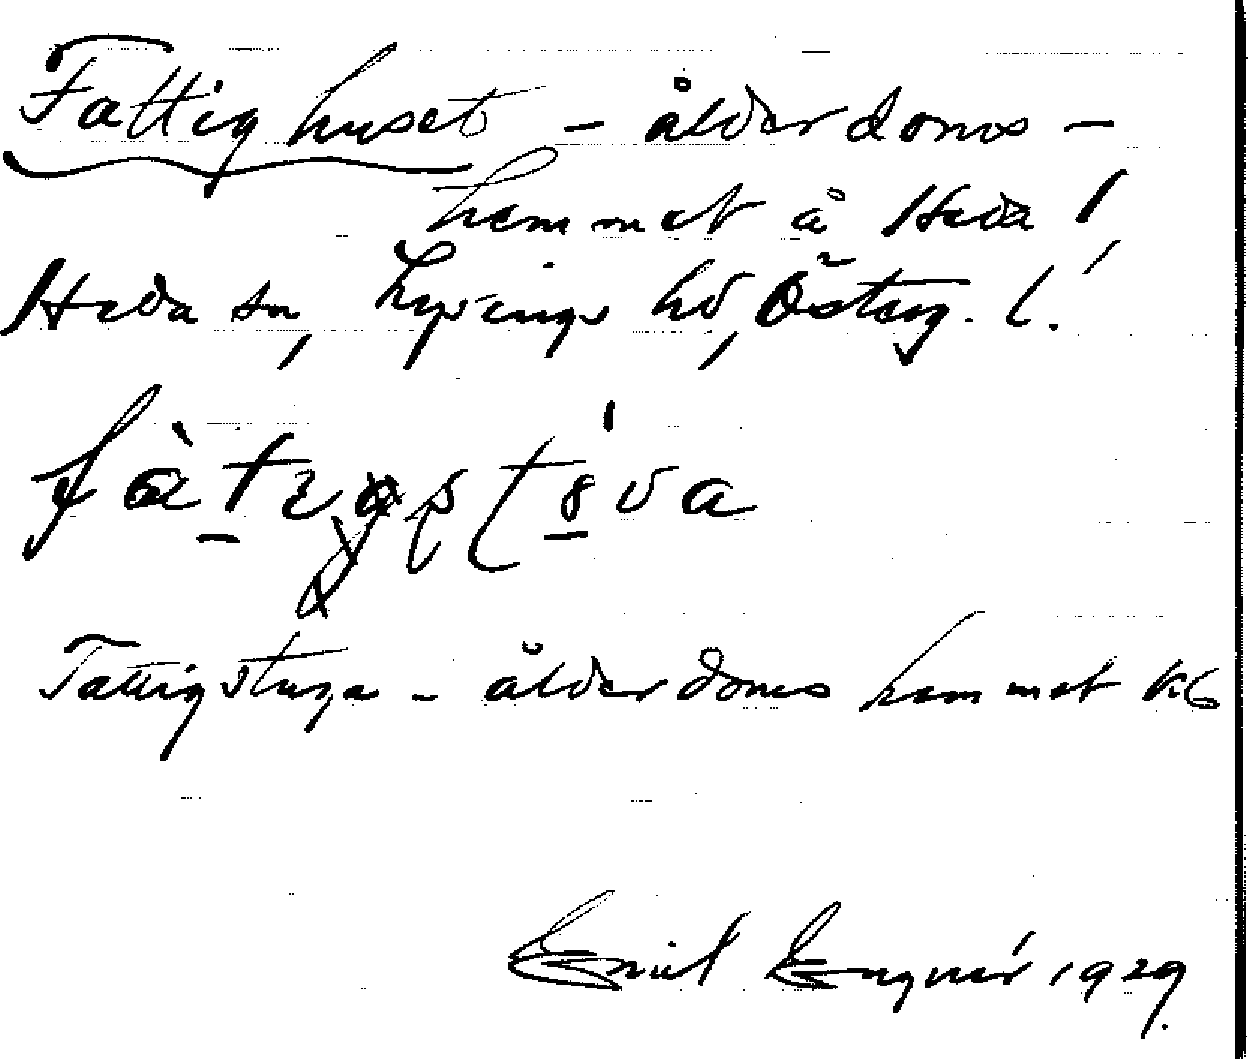 Fattighuset - ålderdoms-
hemmet å Heda!
Heda sn, Lysings hd, Österg. l.
Fattigstuga - ålderdomshemmet
Emil Engnér 1929.